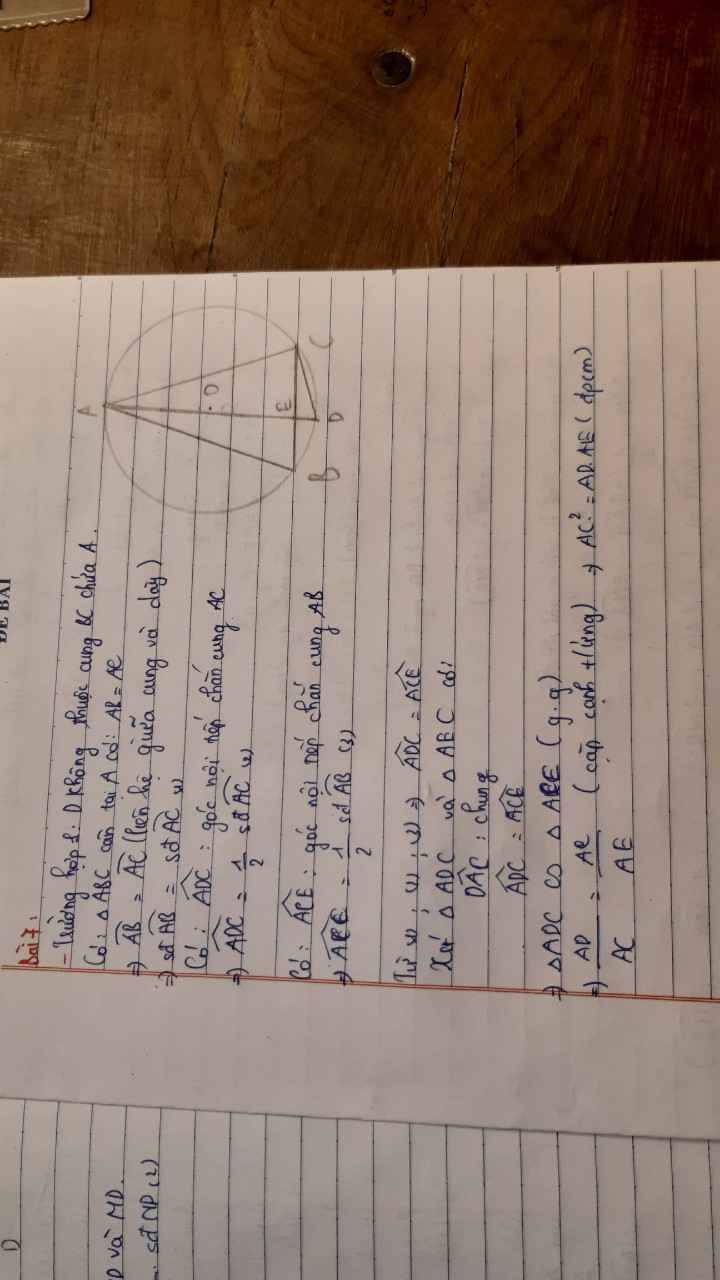 ĐỀ BÀI
Bài 7:
- Trường hợp 1: D không thuộc cung BC chứa A.
Có: △ABC cân tại A có: AB = AC
⇒ AB = AC (liên hệ giữa cung và dây)
⇒ sđ AB = sđ AC (1)
Có: ADC : góc nội tiếp chắn cung AC
⇒ ADC = 1/2 sđ AC (2)
Có: ACE : góc nội tiếp chắn cung AB
⇒ ACE = 1/2 sđ AB (3)
Từ (1) ; (2) ; (3) ⇒ ADC = ACE
Xét △ADC và △AEC có:
DAC : chung
ADC = ACE
⇒ △ADC ∽ △ACE (g.g)
⇒ AD/AC = AC/AE (cặp cạnh t/ứng) ⇒ AC² = AD.AE (đpcm)
A
O
E
B
D
C
D
D và MD.
sđ NP (2)